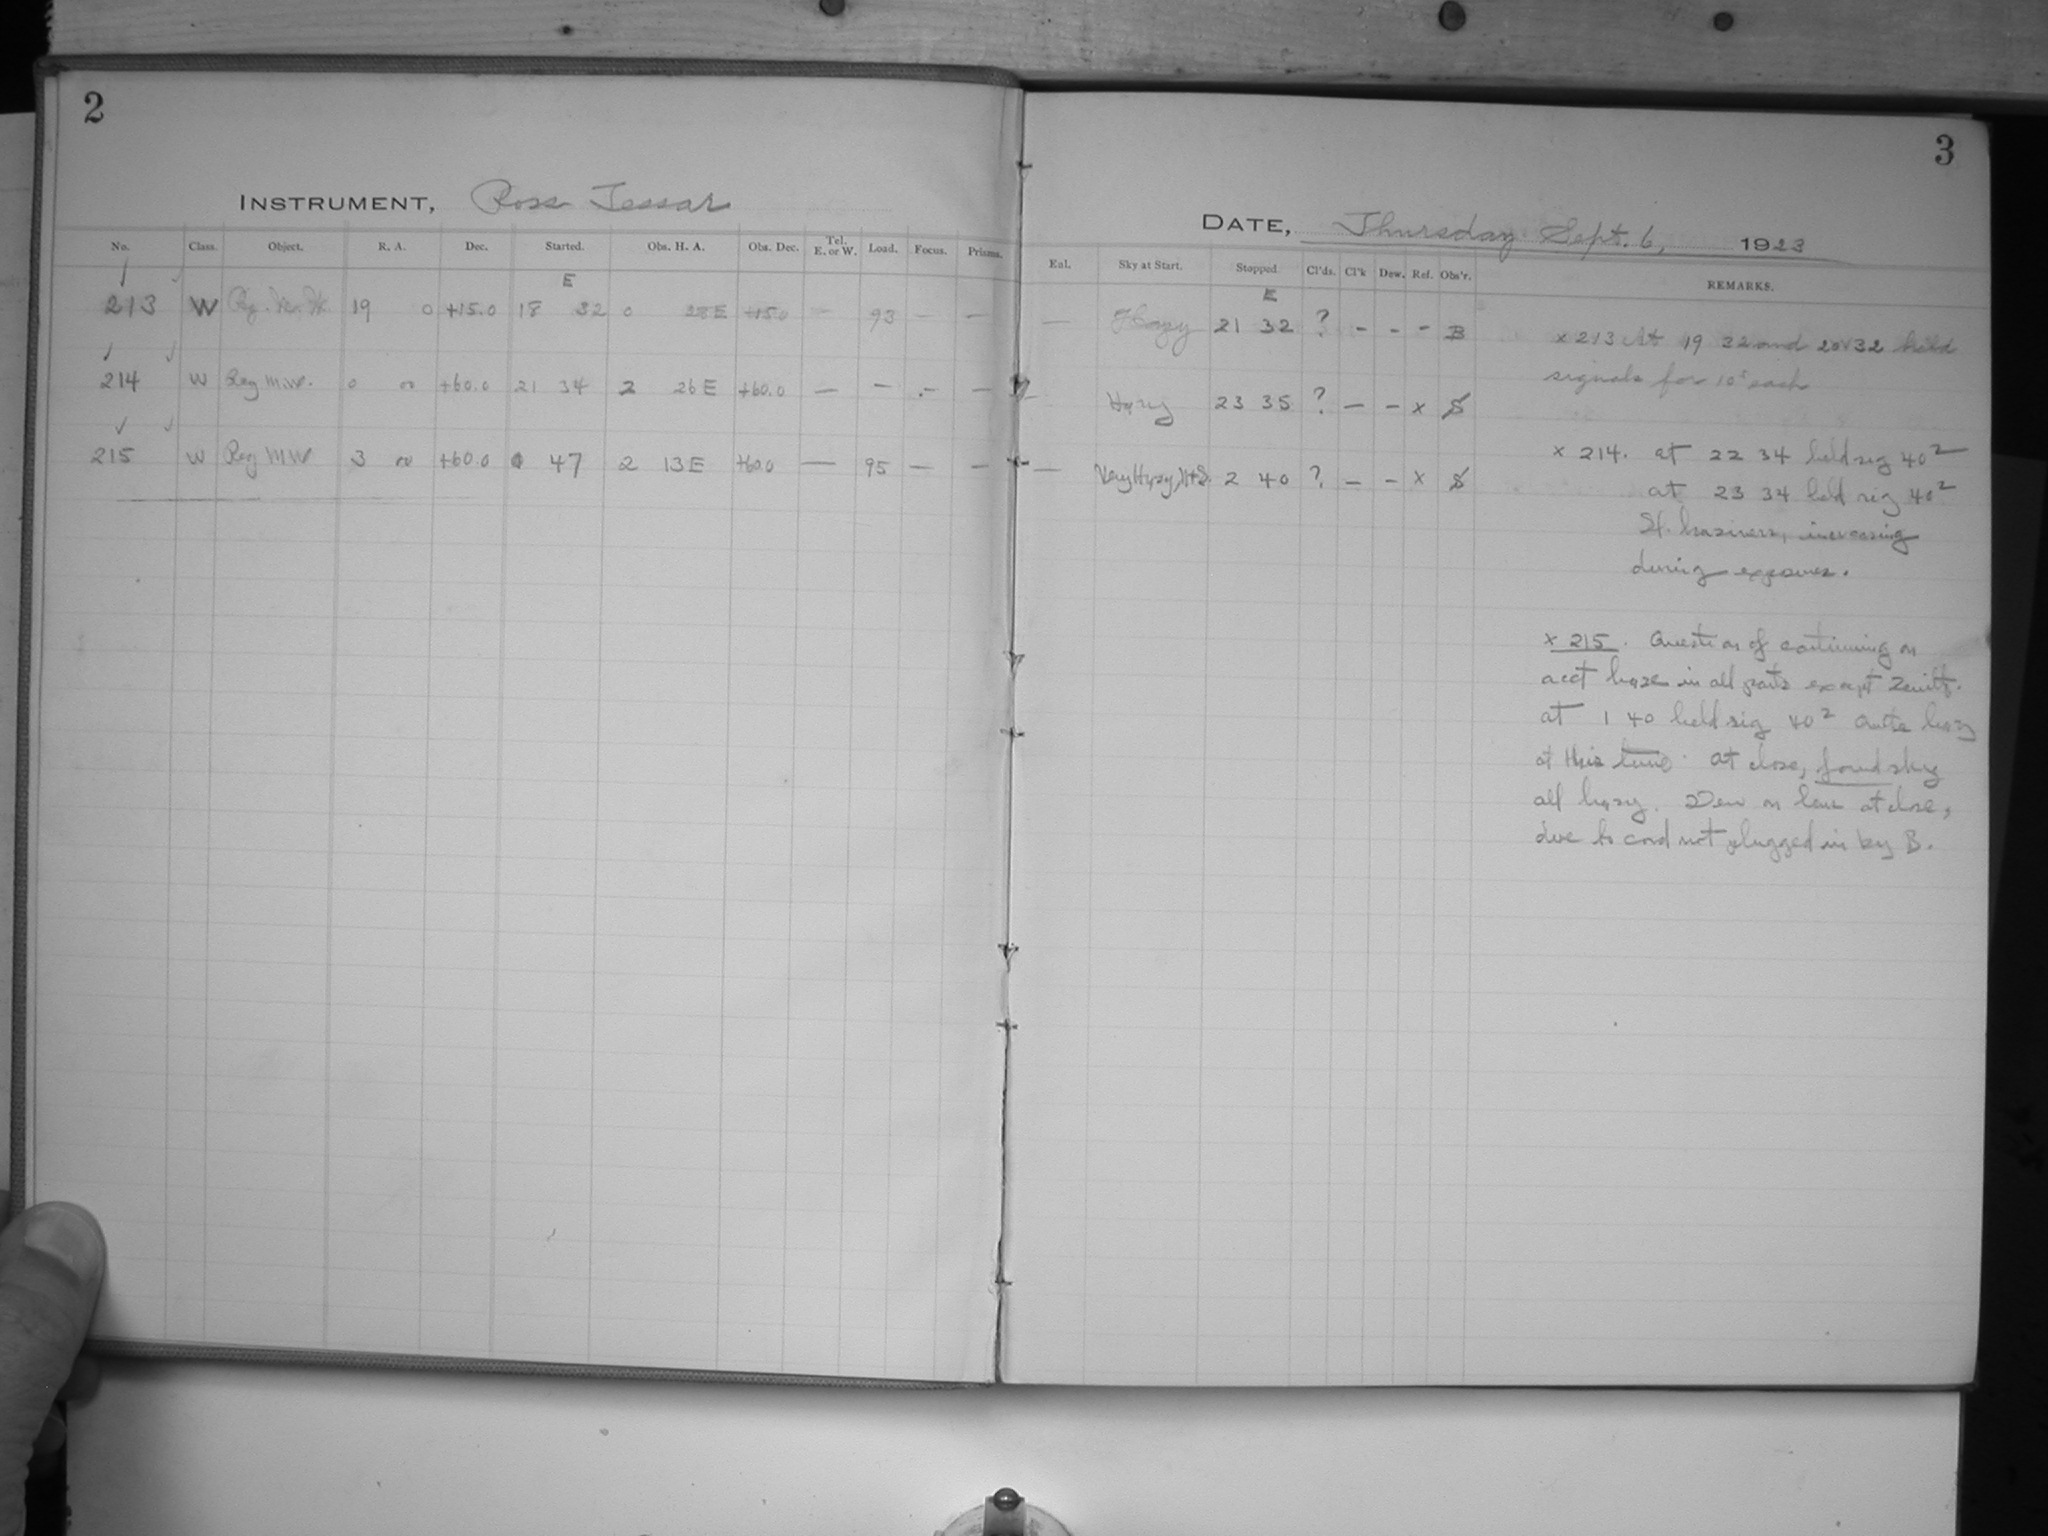 2
INSTRUMENT, Ross Tessar
No. Class. Object. R. A. Dec. Started. Obs. H. A. Obs. Dec. Tel. E. or W. Load. Focus. Prisms.
E
213 W Rg. M. W. 19 0 +15.0 18 32 0 28 E +15.0 — 93 — —
214 W Reg M.W. 0 00 +60.0 21 34 2 26 E +60.0 — — — —
215 W Reg M W 3 00 +60.0 0 47 2 13 E +60.0 — 95 — —
3
DATE, Thursday Sept. 6, 1923
Enl. Sky at Start. Stopped Cl'ds. Cl'k Dew. Ref. Obs'r. REMARKS.
E
— Hazy 21 32 ? - - - B
— Hazy 23 35 ? — — x S
— Very Hazy, 2 40 ? — — x S
x 213 At 19 32 and 20 32 held
signals for 10s each
x 214. at 22 34 held sig 40 2
at 23 34 held sig 40 2
Sl. haziness, increasing
during exposure.
x 215. Question of continuing on
acct haze in all parts except Zenith.
at 1 40 held sig 40 2 Quite hazy
at this time. At close, found sky
all hazy. Dew on lens at close,
due to cord not plugged in by B.